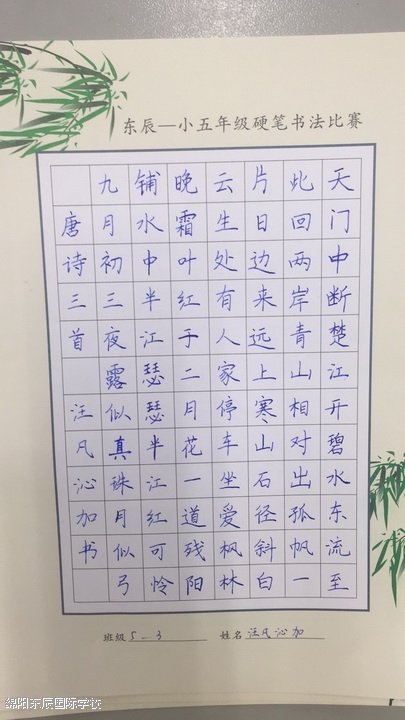 东辰一小五年级硬笔书法比赛
天门中断楚江开碧水东流至
此回两岸青山相对出孤帆一
片日边来远上寒山石径斜白
云生处有人家停车坐爱枫林
晚霜叶红于二月花一道残阳
铺水中半江瑟瑟半江红可怜
九月初三夜露似真珠月似弓
唐诗三首 汪凡沁加书
班级 5—3 姓名 汪凡沁加
绵阳东辰国际学校